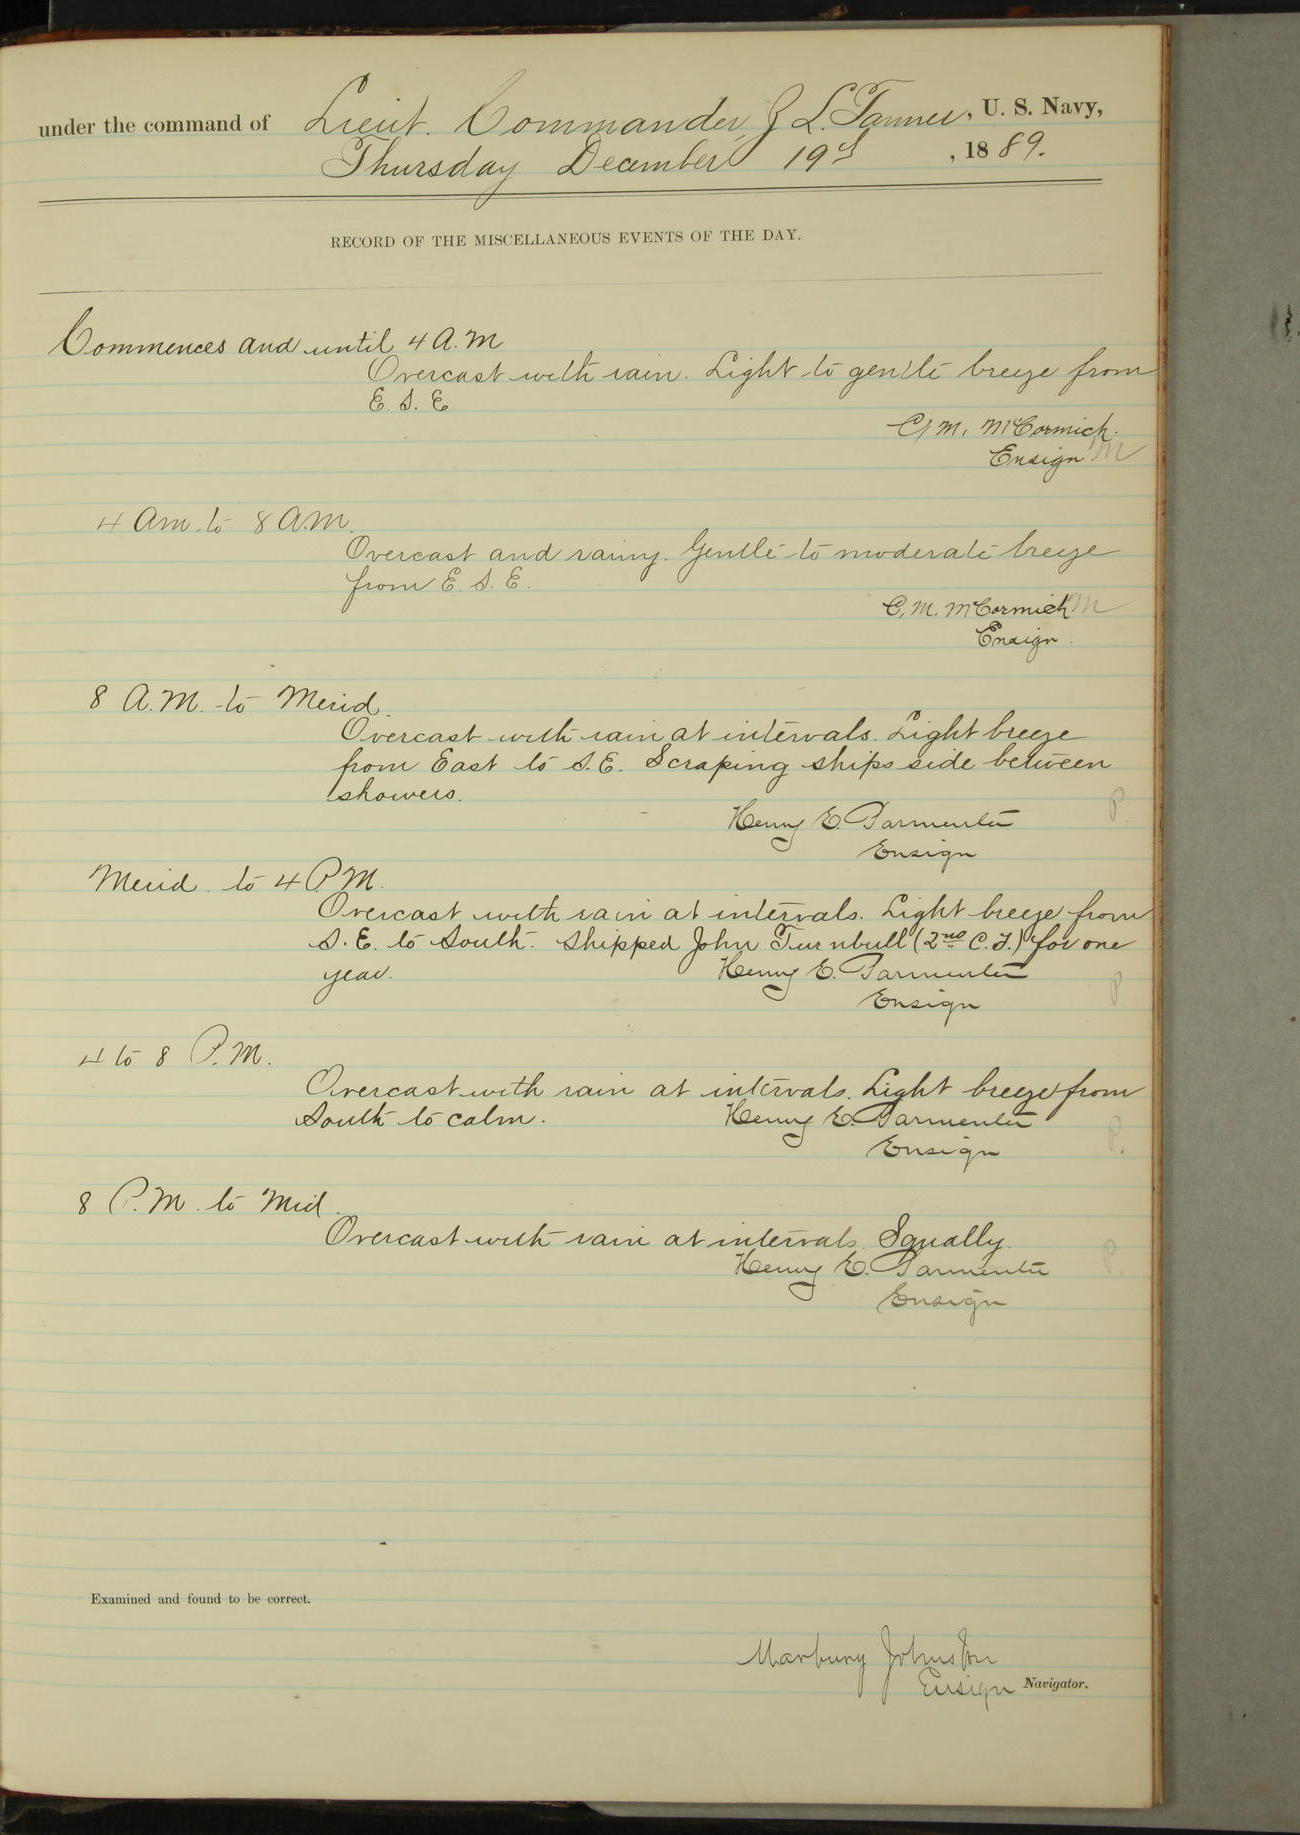 under the command of Lieut. Commander, Z L. Tanner, U. S. Navy,
Thursday December 19th, 1889.
RECORD OF THE MISCELLANEOUS EVENTS OF THE DAY.
Commences and until 4 A.M
Overcast with rain. Light to gentle breeze from
E. S. E
C, M, McCormick.
Ensign M
4 Am to 8 A.M.
Overcast and rainy. Gentle to moderate breeze
from E. S. E.
C, M. McCormick M
Ensign.
8 A.M. to Merid.
Overcast with rain at intervals. Light breeze
from East to S.E. Scraping ships side between
showers.
Henry E. Parmenter P.
Ensign
Merid. to 4 P.M.
Overcast with rain at intervals. Light breeze from
S. E. to South. Shipped John Turnbull (2nd C. F.) for one
year. Henry E. Parmenter P
Ensign
4 to 8 P.M.
Overcast with rain at intervals. Light breeze from
South to calm. Henry E. Parmenter P.
Ensign
8 P.M. to Mid.
Overcast with rain at intervals. Squally.
Henry E. Parmenter P.
Ensign
Examined and found to be correct.
Marbury Johnston
Ensign Navigator.